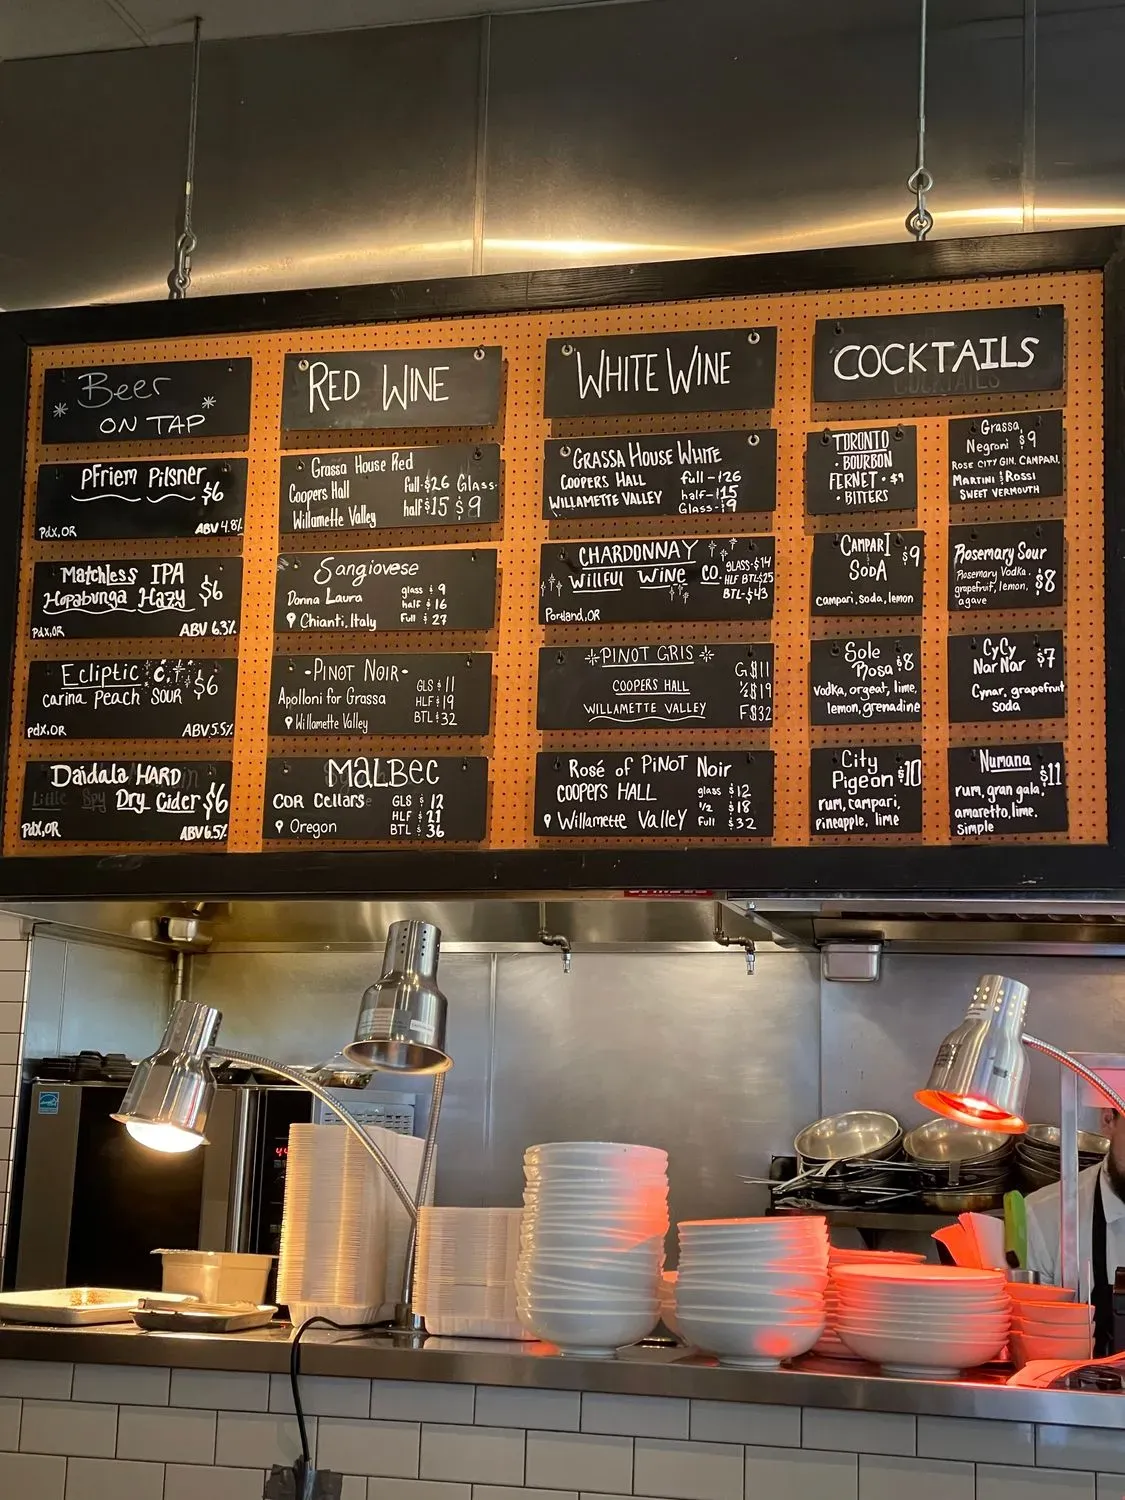 Beer
ON TAP
PFriem Pilsner $6
Pdx, OR ABV 4.8%
Matchless IPA
Hopabunga Hazy $6
Pdx, OR ABV 6.3%
Ecliptic
carina Peach SOUR $6
pdx, OR ABV 5.5%
Daidala HARD
Dry Cider $6
Pdx, OR ABV 6.5%
RED WINE
Grassa House Red
Coopers Hall full $26 Glass
Willamette Valley half $15 $9
Sangiovese
Donna Laura glass $9
half $16
Chianti, Italy Full $27
-PINOT NOIR-
Apolloni for Grassa GLS $11
HLF $19
Willamette Valley BTL $32
MALBEC
COR Cellars GLS $12
HLF $21
Oregon BTL $36
WHITE WINE
GRASSA HOUSE WHITE
COOPERS HALL full-$26
WILLAMETTE VALLEY half-$15
Glass-$9
CHARDONNAY
WILLFUL WINE CO. GLASS-$14
HLF BTL$25
BTL-$43
Portland, OR
PINOT GRIS
G $11
COOPERS HALL ½ $19
WILLAMETTE VALLEY F $32
Rosé of PINOT Noir
COOPERS HALL glass $12
½ $18
Willamette Valley full $32
COCKTAILS
TORONTO
• BOURBON
FERNET • $9
• BITTERS
Grassa
Negroni $9
ROSE CITY GIN, CAMPARI,
MARTINI & ROSSI
SWEET VERMOUTH
CAMPARI
SODA $9
campari, soda, lemon
Rosemary Sour
Rosemary Vodka,
grapefruit, lemon, $8
agave
Sole
Rosa $8
Vodka, orgeat, lime,
lemon, grenadine
CYCY
NAR NAR $7
Cynar, grapefruit
soda
City
Pigeon $10
rum, campari,
pineapple, lime
Numana $11
rum, gran gala,
amaretto, lime,
simple